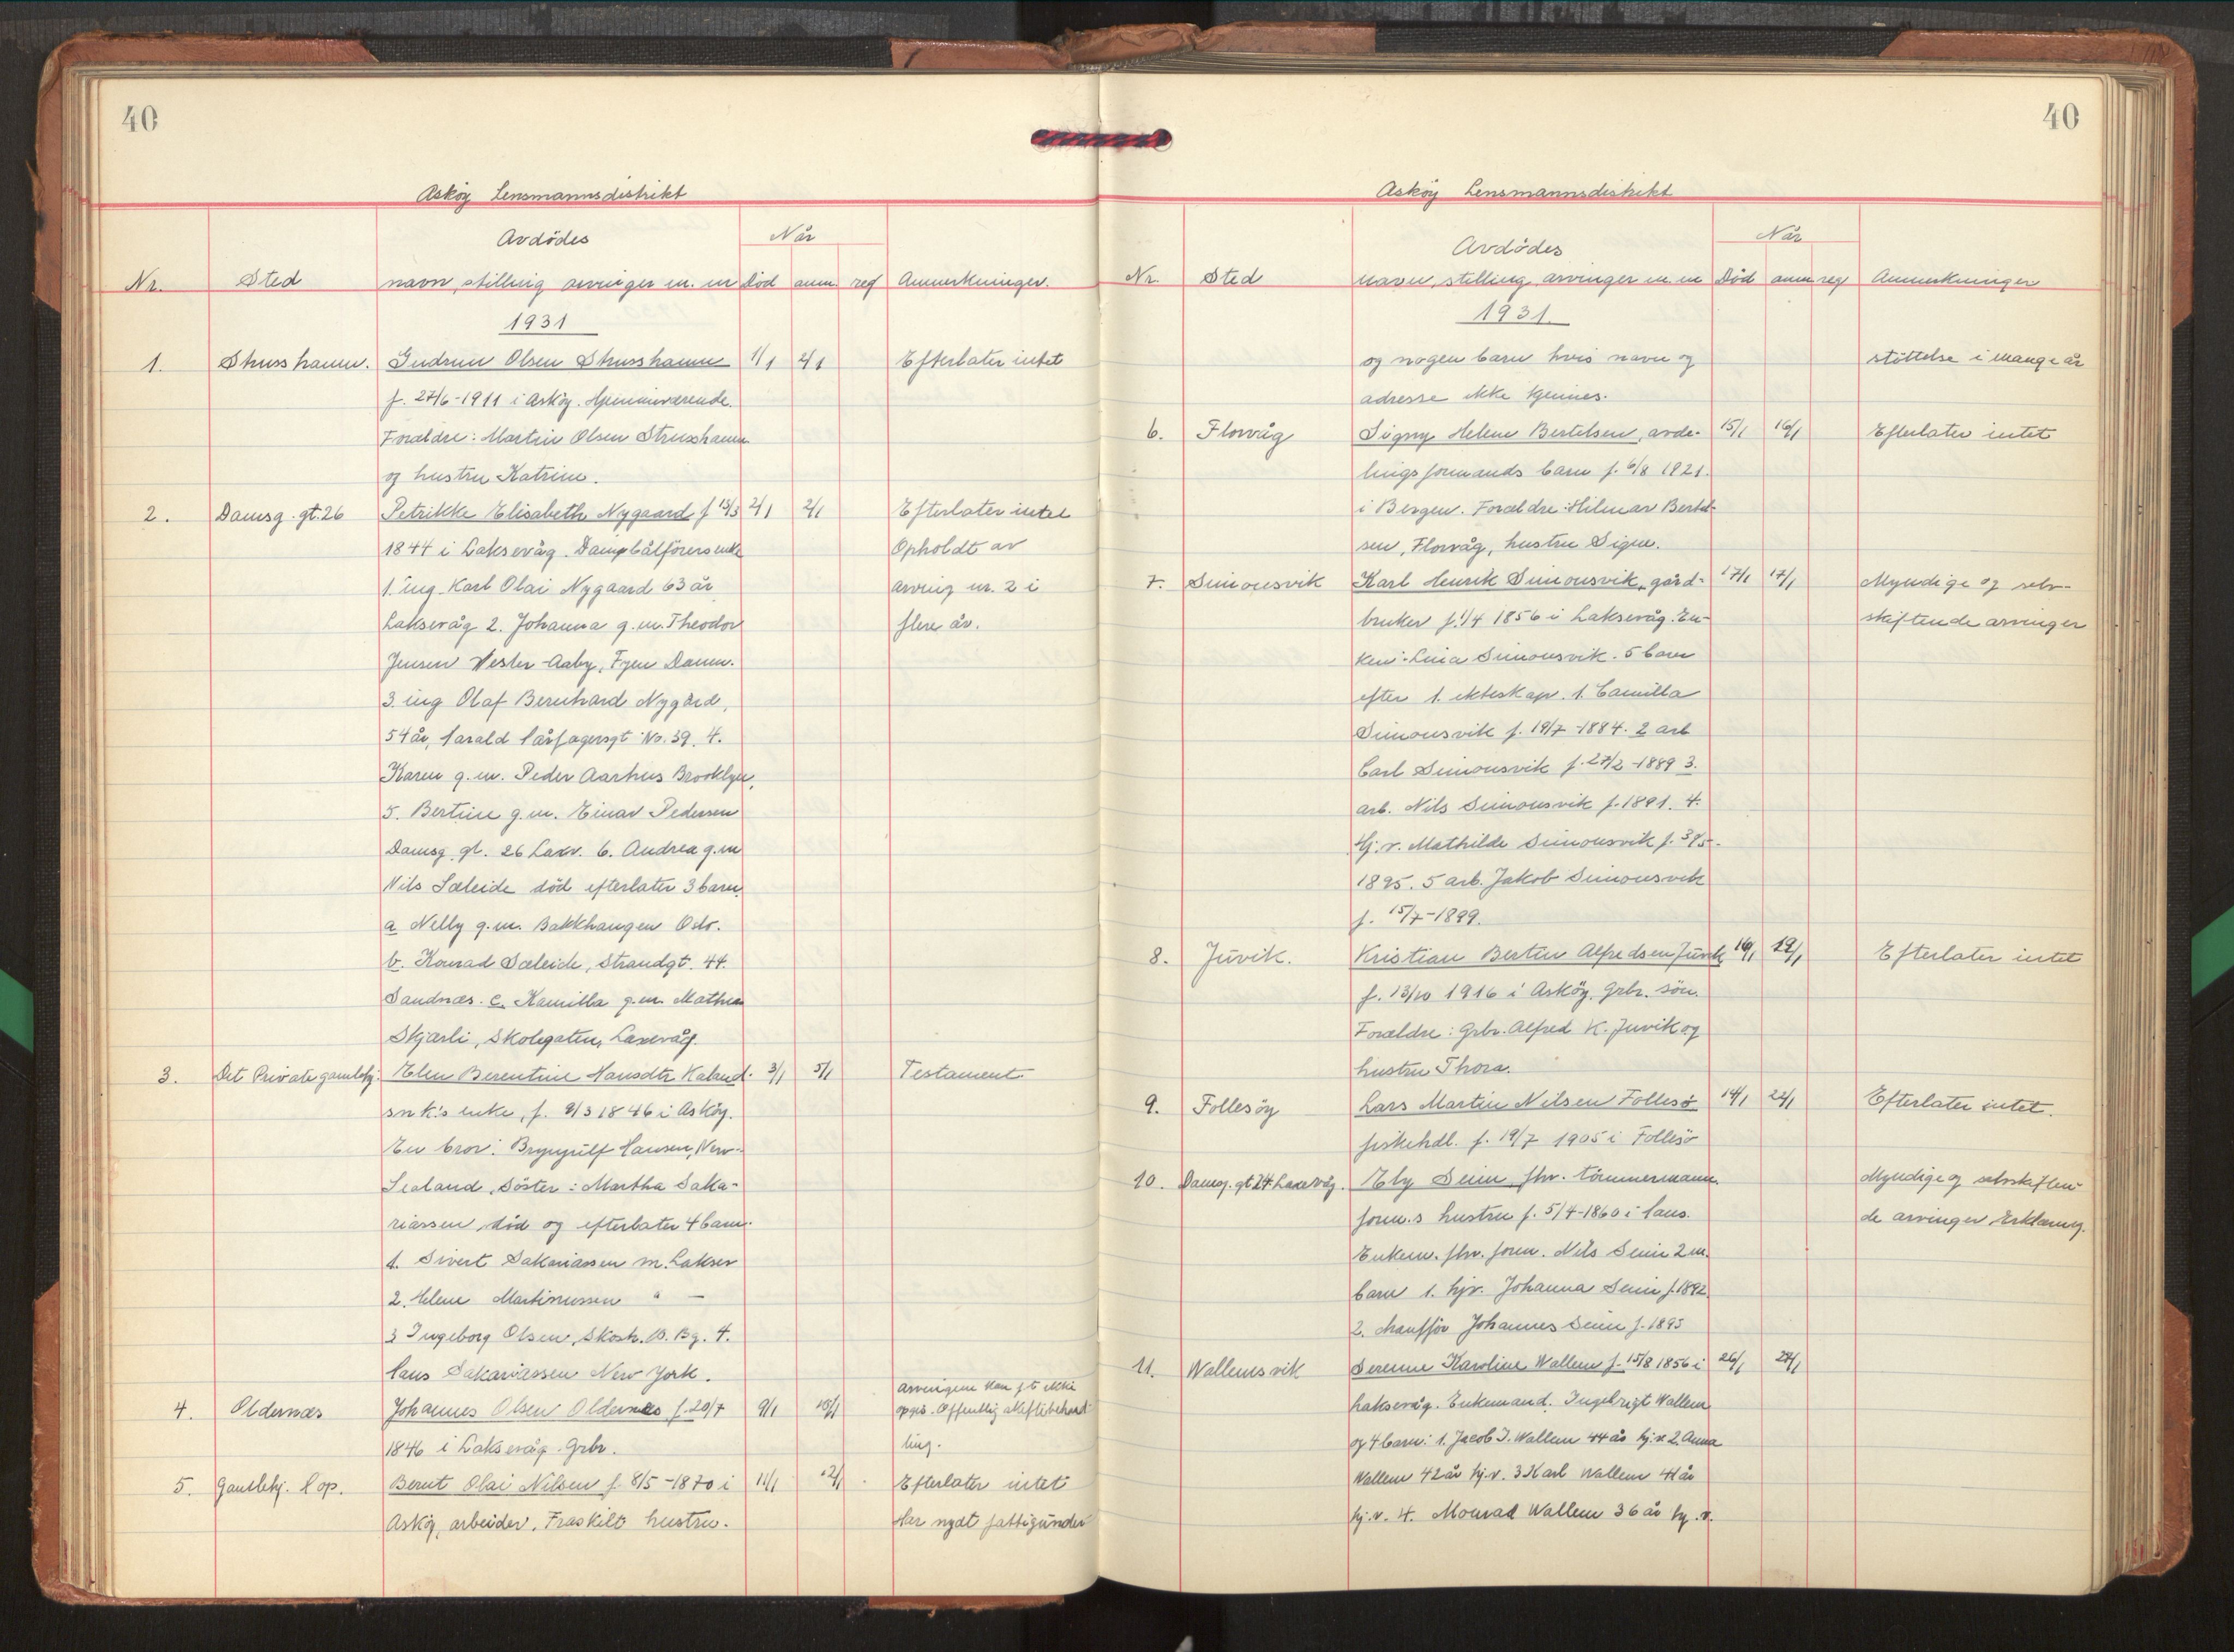 40
Asköy Lensmannsdistrikt
Avdödes
Når
Nr. Sted navn, stilling arvinger m. m död anm. reg Anmerkninger.
1931
1. Strusshamn. Gudrun Olsen Strusshamn 1/1 2/1 Efterlater intet
f. 27/6-1911 i Asköy. Hjemmeværende.
Forældre: Martin Olsen Strusshamn
og hustru Katrine.
2. Damsg. gt. 26 Petrikke Elisabeth Nygaard f 13/3 2/1 2/1 Efterlater intet
1844 i Laksevåg. Dampbåtförers enke Opholdt av
1. ing. Karl Olai Nygaard 63 år arving nr. 2 i
Laksevåg 2. Johanna g. m. Theodor flere år.
Jensen Vester-Aaby, Fyen Danm.
3. ing Olaf Bernhard Nygård,
54 år, Harald Hårfagersgt No. 39. 4.
Karen g. m. Peder Aarhus Brooklyn,
5. Bertine g. m. Einar Pedersen
Damsg. gt. 26 Laxv. 6. Andrea g. m
Nils Sæleide död efterlater 3 barn.
a Nelly g. m. Bakkhaugen Oslo.
b. Konrad Sæleide, Strandgt. 44.
Sandnæs. c. Kamilla g. m. Mathias
Skjærli, Skolegaten, Laxevåg.
3. Det Private gamlehj. Elen Berentine Hansdtr Kalsud. 3/1 5/1 Testament
snk's enke, f. 9/3 1846 i Asköy.
En bror: Brynjulf Hansen, New-
Sealand, Söster: Martha Saka-
riassen död og efterlater 4 barn.
1. Sivert Sakariassen m. Laksev
2. Helene Martinussen " —
3 Ingeborg Olsen, Skostr. 13. Bg. 4.
Hans Sakariassen New York.
4. Oldernæs Johannes Olsen Oldernæs f. 20/7 9/1 10/1 Arvingene kan f.t. ikke
opgis. Offentlig skiftebehand
1846 i Laksevåg. Grbr. ling.
5. Gamlehj. Hop. Bernt Olai Nilsen f. 8/5-1870 i 11/1 12/1 Efterlater intet
Asköy, arbeider. Fraskilt hustru. Har nydt fattigunder
40
Asköy Lensmannsdistrikt
Avdödes
Når
Nr. Sted navn, stilling, arvinger m. m Död anm. reg Anmerkninger
1931.
og nogen barn hvis navn og stöttelse i mange år
adresse ikke kjennes.
6. Florvåg Signy Helene Bertelsen, avde- 15/1 16/1 Efterlater intet
lingsformands barn f. 6/8 1921.
i Bergen. Forældre: Hilmar Bertel-
sen, Florvåg, hustru Signe.
7. Simonsvik Karl Henrik Simonsvik, gård- 17/1 17/1 Myndige og selv-
bruker f. 1/4 1856 i Laksevåg. En- skiftende arvinger
ken: Lina Simonsvik. 5 barn
efter 1. ekteskap. 1. Camilla
Simonsvik f. 19/7-1884. 2 arb
Carl Simonsvik f. 27/2-1889 3.
arb. Nils Simonsvik f. 1891. 4.
Hj. v. Mathilde Simonsvik f. 5.
1895. 5 arb. Jakob Simonsvik
f. 15/7-1899.
8. Juvik. Kristian Bertin Alfredsen Juvik 16/1 19/1 Efterlater intet
f. 13/10 1916 i Asköy. Grbr. sön.
Forældre: Grbr. Alfred K. Juvik og
hustru Thora.
9. Follesöy Lars Martin Nilsen Follesö 14/1 22/1 Efterlater intet.
fiskehdl. f. 19/7 1905 i Follesö
10. Damsg. gt 24 Laxevåg. Ely Seim, fhv. tömmermann. Myndige og selvskiften
form.s hustru f. 5/4-1860 i Haus. de arvinger. Erklæring.
Enkem. fhv. form. Nils Seim 2 m.
barn 1. hjv. Johanna Seim f. 1892.
2. chaufför Johannes Seim f. 1895
11. Wallemsvik Serenne Karoline Wallem f. 15/8 1856 i 26/1 27/1
Laksevåg. Enkemand. Ingebrigt Wallem
og 4 barn: 1. Jacob I. Wallem 44 år hj. v. 2. Anna
Wallem 42 år hj. v. 3 Karl Wallem 41 år
hj. v. 4. Monrad Wallem 36 år hj. v.